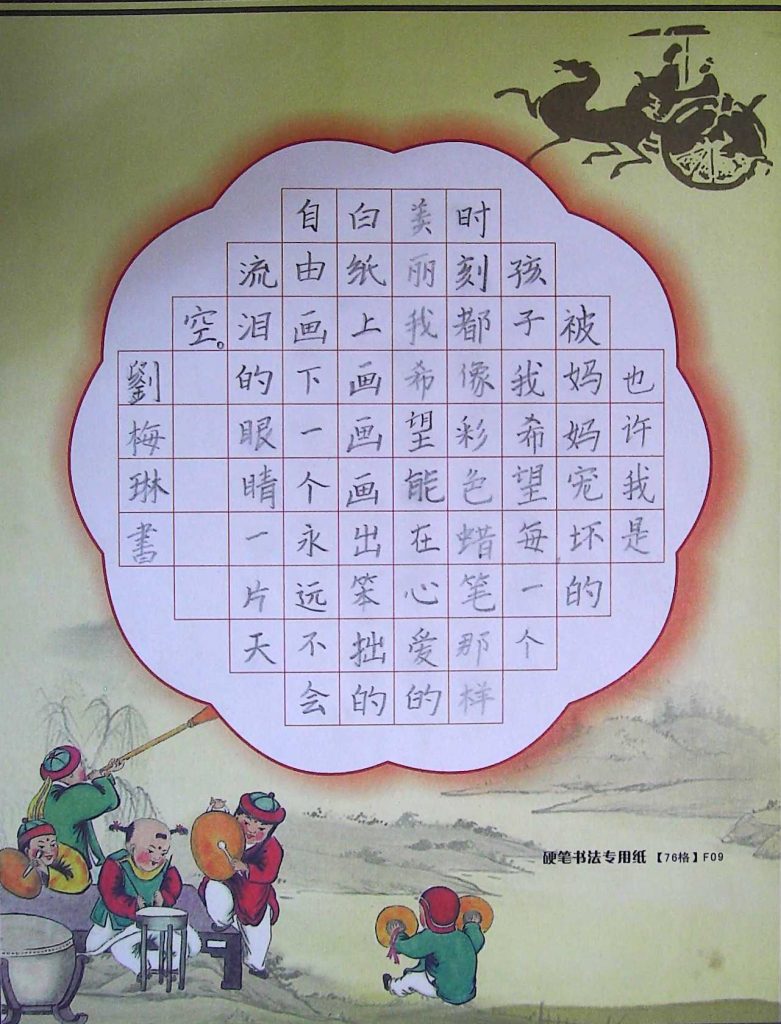 也许我是
被妈妈宠坏的
孩子我希望每一个
时刻都像彩色蜡笔那样
美丽我希望能在心爱的
白纸上画画画出笨拙的
自由画下一个永远不会
流泪的眼睛一片天
空。
劉梅琳書
硬笔书法专用纸【76格】F09